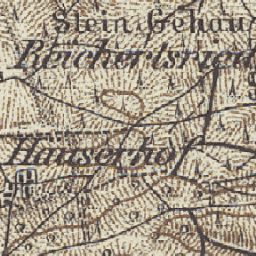 Stein Gehau
Reichertsried
Hauserhof